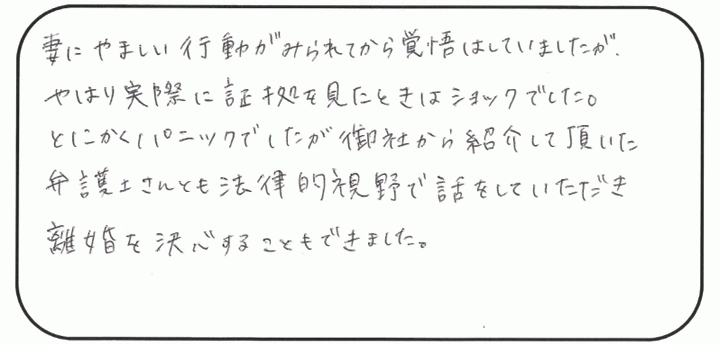 妻にやましい行動がみられてから覚悟はしていましたが、
やはり実際に証拠を見たときはショックでした。
とにかくパニックでしたが御社から紹介して頂いた
弁護士さんとも法律的視野で話をしていただき
離婚を決心することもできました。